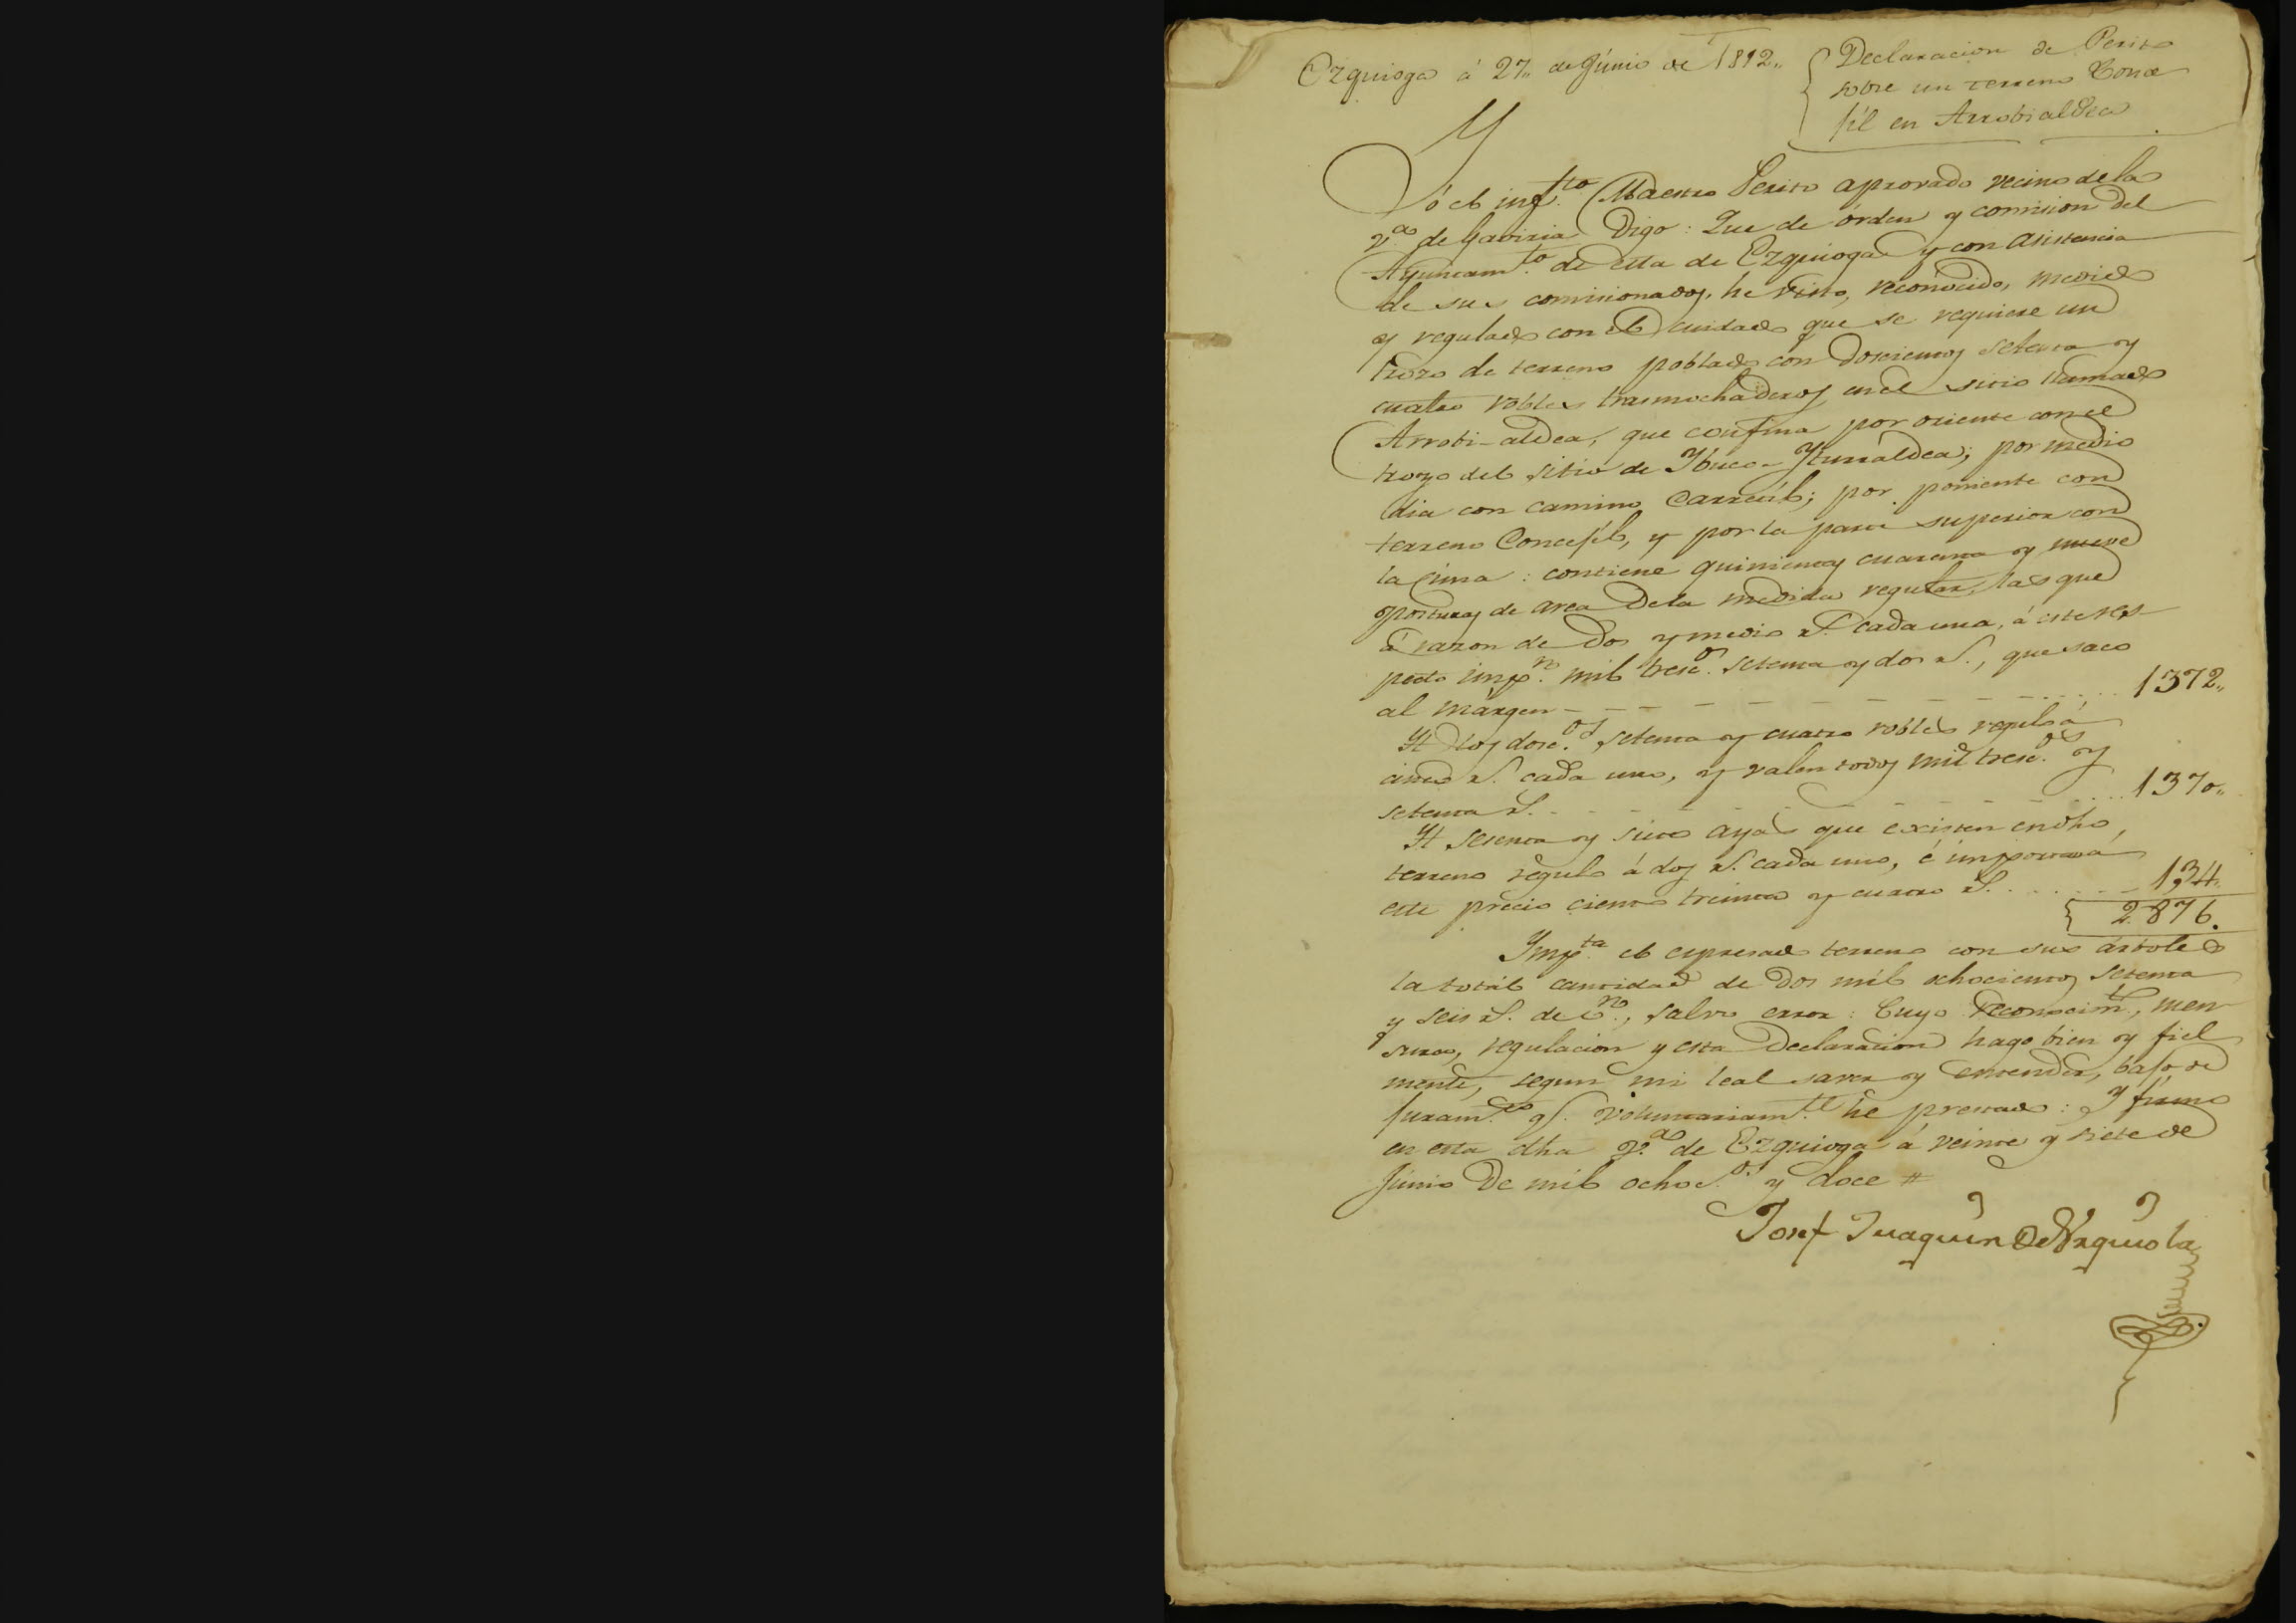 Ezquioga á 27,, de Junio de 1812,,
Declaracion de Perito
sobre un terreno Conce
jil en Arrobialdea
Yó el inf.to Maestro Perito aprovado vecino de la
v.a de Gaviria Digo: Que de órden y comision del
Ayuntam.to de esta de Ezquioga y con asistencia
de sus comisionados, he visto, reconocido, medido
y regulado con el cuidado que se requiere un
trozo de terreno poblado con doscientos setenta y
cuatro robles trasmochaderos en el sitio llamado
Arrobi-aldea, que confina por oriente con el
trozo del sitio de Ybuco-Yturraldea; por medio
dia con camino Carretil; por poniente con
terreno Concejil, y por la parte superior con
la Cima: contiene quinientas cuarenta y nueve
posturas de area de la medida regular, las que
á razon de dos y medio r.s cada una, á este res-
pecto imp.n mil tresc.os setenta y dos r.s, que saco
al margen - - - - - - - - - - 1372,,
Yt Los dosc.os setenta y cuatro robles reguló á
cinco r.s cada uno, y valen todos mil tresc.os y
setenta r.s - - - - - - - - 1370,,
Yt Sesenta y siete ayas que existen en dho
terreno reguló á dos r.s cada uno, é importan á
este precio ciento treinta y cuatro r.s . . . . . . 134.
2.876.
Ymp.ta el espresado terreno con sus árboles
la totál cantidad de dos mil ochocientos setenta
y seis r.s de v.n, salvo error: Cuyo reconocim.to, men
sura, regulacion y esta Declaracion hago bien y fiel
mente, segun mi leal saver y entender, bajo de
juram.to q.e voluntariam.te he prestado: Y firmo
en esta dha v.a de Ezquioga á veinte y siete de
Junio de mil ochoc.os y doce #
Josef Juaquin de Urquiola